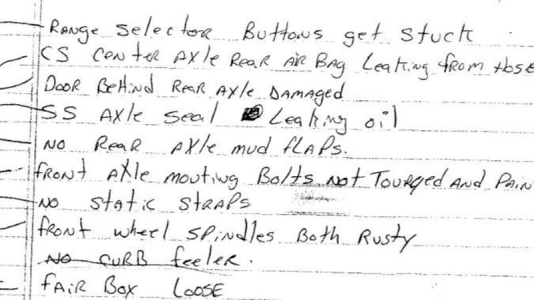 RANGE SElECTOR BUTTONS get Stuck
CS CENTER AXLE REAR AIR BAg Leaking from
DOOR BEHIND REAR AXLE DAMAGED
SS AXLE Seal Leaking oil
NO REAR AXLE mud flAPS.
fRONT AXle mouting Bolts NOT TOURQED AND PAIN
NO STATIC STRAPS
front wheel SPINDLES BOTH RUSTY
NO CURB feeler.
fAIR BOX LOOSE